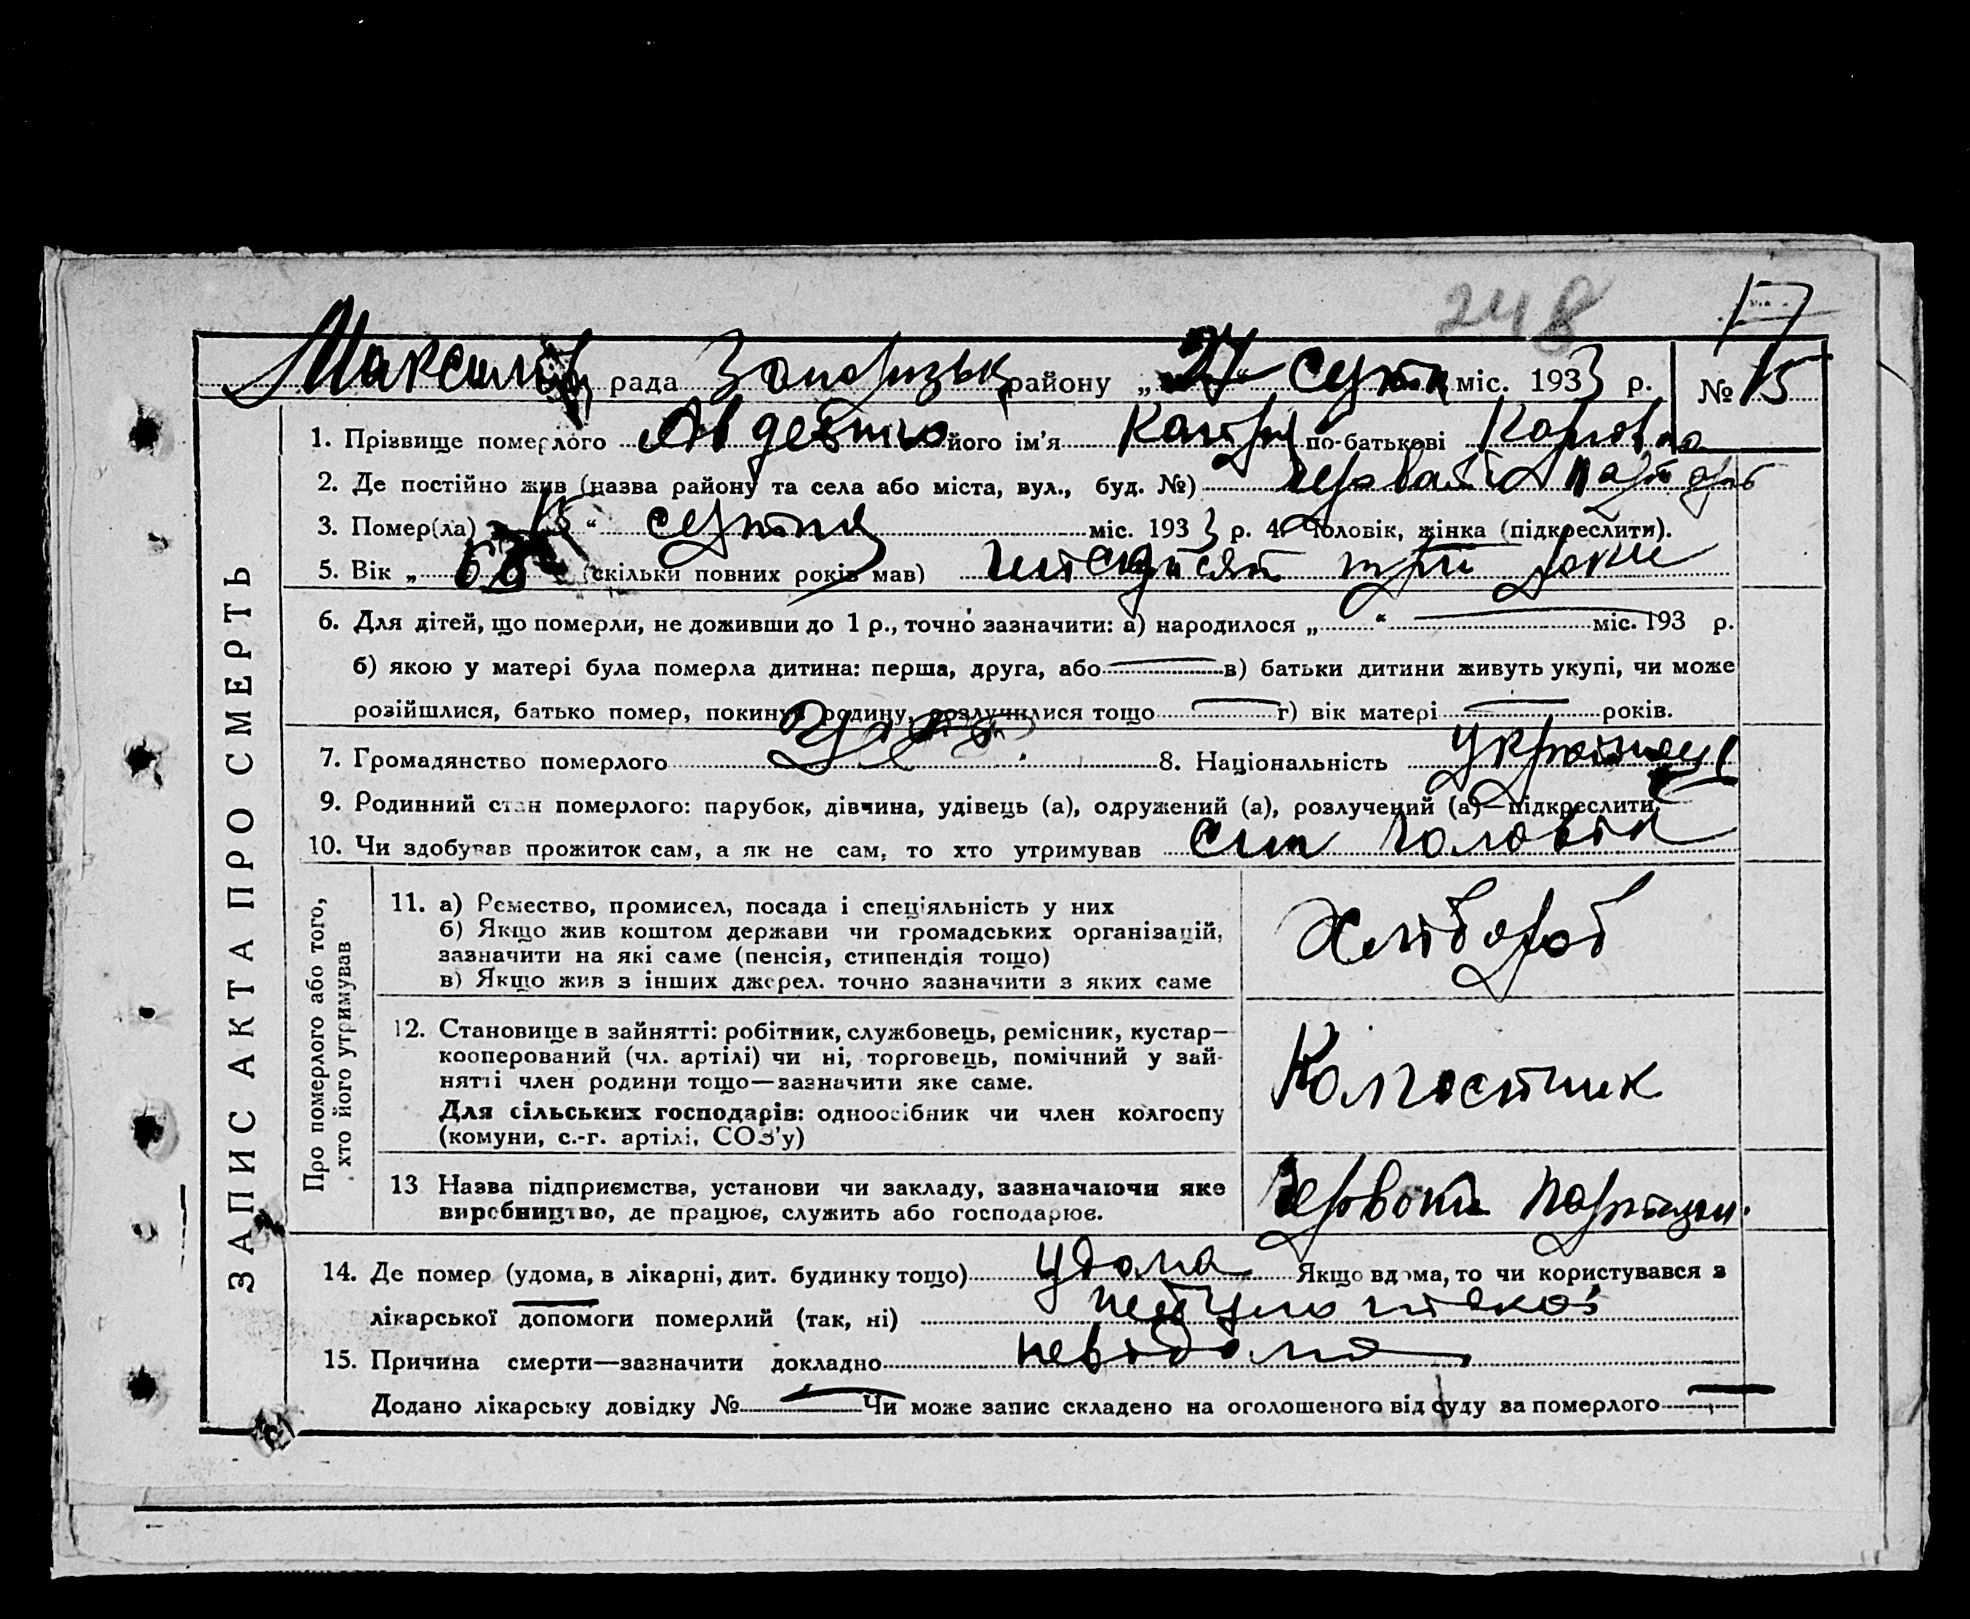 248
17
Максимів рада Запорізьк району „27“ серпн міс. 1933 р. № 15
ЗАПИС АКТА ПРО СМЕРТЬ
1. Прізвище померлого його ім’я по-батькові
2. Де постійно жив (назва району та села або міста, вул., буд. №)
3. Помер(ла) 15 “ серпня міс. 1933 р. 4. Чоловік, жінка (підкреслити).
5. Вік „ 63 (скільки повних років мав) шістдісят три роки
6. Для дітей, що померли, не доживши до 1 р., точно зазначити: а) народилося „ “ міс. 193 р.
б) якою у матері була померла дитина: перша, друга, або в) батьки дитини живуть укупі, чи може
розійшлися, батько помер, покинув родину, розлучилися тощо г) вік матері років.
7. Громадянство померлого 8. Національність українец
9. Родинний стан померлого: парубок, дівчина, удівець (а), одружений (а), розлучений (а)—підкреслити.
10. Чи здобував прожиток сам, а як не сам, то хто утримував
Про померлого або того,
хто його утримував
11. а) Ремество, промисел, посада і спеціяльність у них
б) Якщо жив коштом держави чи громадських організацій,
зазначити на які саме (пенсія, стипендія тощо)
в) Якщо жив з інших джерел. точно зазначити з яких саме
Хлібороб
12. Становище в зайнятті: робітник, службовець, ремісник, кустар—
кооперований (чл. артілі) чи ні, торговець, помічний у зай-
нятті член родини тощо—зазначити яке саме.
Для сільських господарів: одноосібник чи член колгоспу
(комуни, с.-г. артілі, СОЗ’у)
Колгостник
13 Назва підприємства, установи чи закладу, зазначаючи яке
виробництво, де працює, служить або господарює.
14. Де помер (удома, в лікарні, дит. будинку тощо) удома Якщо вдома, то чи користувався з
лікарської допомоги померлий (так, ні)
15. Причина смерти—зазначити докладно невідома
Додано лікарську довідку № Чи може запис складено на оголошеного від суду за померлого